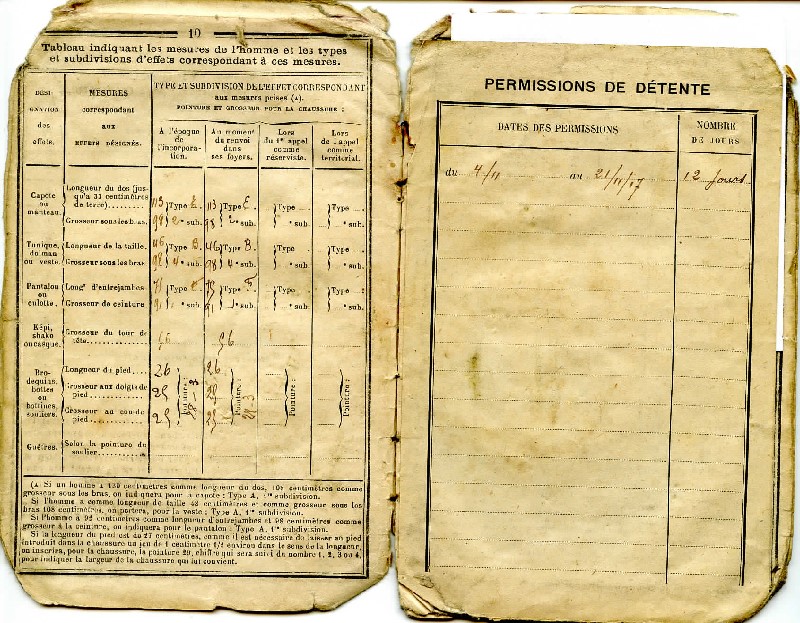 10
Tableau indiquant les mesures de l'homme et les types
et subdivisions d'effets correspondant à ces mesures.
DÉSI-
GNATION
des
effets.
MESURES
correspondant
aux
EFFETS DÉSIGNÉS.
TYPE ET SUBDIVISION DE L'EFFET CORRESPONDANT
aux mesures prises (A).
POINTURE ET GROSSEUR POUR LA CHAUSSURE :
A l'époque
de
l'incorpora-
tion.
Au moment
du renvoi
dans
ses foyers.
Lors
du 1er appel
comme
réserviste.
Lors
de l'appel
comme
territorial.
Capote
ou
manteau.
Longueur du dos (jus-
qu'à 33 centimètres
de terre)
113 Type E. 113 Type E. Type Type
Grosseur sous les bras.
98 2e sub. 98 2e sub. e sub. e sub.
Tunique,
dolman
ou veste.
Longueur de la taille.
46 Type B. 46 Type B. Type Type
Grosseur sous les bras
98 4e sub. 98 4e sub. e sub. e sub.
Pantalon
ou
culotte.
Longr d'entrejambes.
Type Type Type Type
Grosseur de ceinture
e sub. e sub. e sub. e sub.
Képi,
shako
ou casque.
Grosseur du tour de
tête
56 56
Bro-
dequins,
bottes
ou
bottines,
souliers.
Longueur du pied
26 26
Grosseur aux doigts du
pied
25 25
Grosseur au cou-de-
pied
25 25
Pointure : 28 3
Pointure : 28 3
Pointure :
Pointure :
Guêtres.
Selon la pointure du
soulier
(A) Si un homme a 139 centimètres comme longueur du dos, 108 centimètres comme
grosseur sous les bras, on indiquera pour la capote : Type A, 1re subdivision.
Si l'homme a comme longueur de taille 48 centimètres et comme grosseur sous les
bras 108 centimètres, on portera, pour la veste : Type A, 1re subdivision.
Si l'homme a 92 centimètres comme longueur d'entrejambes et 98 centimètres comme
grosseur à la ceinture, on indiquera pour le pantalon : Type A, 1re subdivision.
Si la longueur du pied est de 27 centimètres, comme il est nécessaire de laisser au pied
introduit dans la chaussure un jeu de 1 centimètre 1/2 environ dans le sens de la longueur,
on inscrira, pour la chaussure, la pointure 29, chiffre qui sera suivi du nombre 1, 2, 3 ou 4,
pour indiquer la largeur de la chaussure qui lui convient.
PERMISSIONS DE DÉTENTE
DATES DES PERMISSIONS
NOMBRE
DE JOURS
du 4/11 au 21/11/17 12 Jours